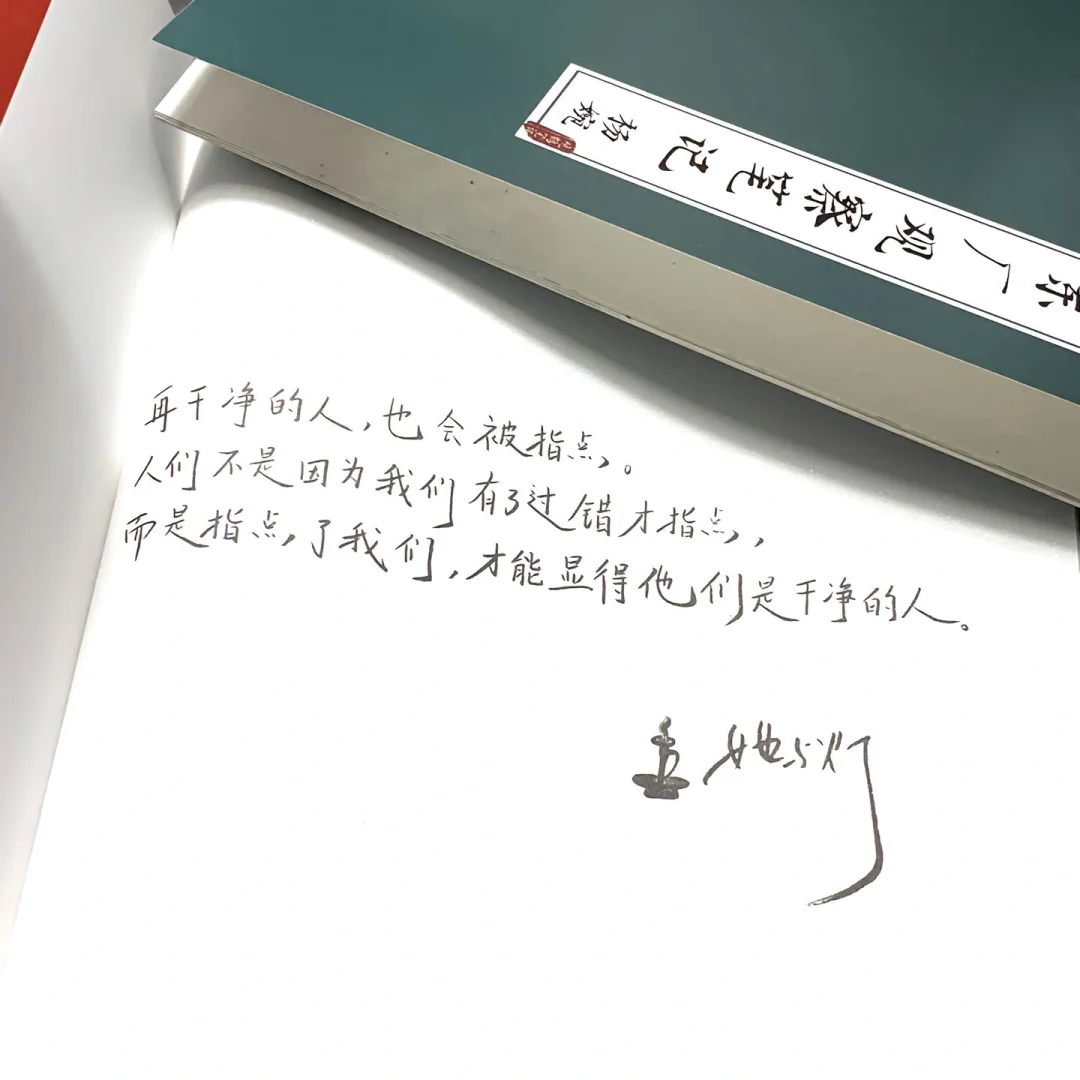 东厂观察笔记
杨婉
再干净的人,也会被指点。
人们不是因为我们有了过错才指点,
而是指点了我们,才能显得他们是干净的人。
她与灯